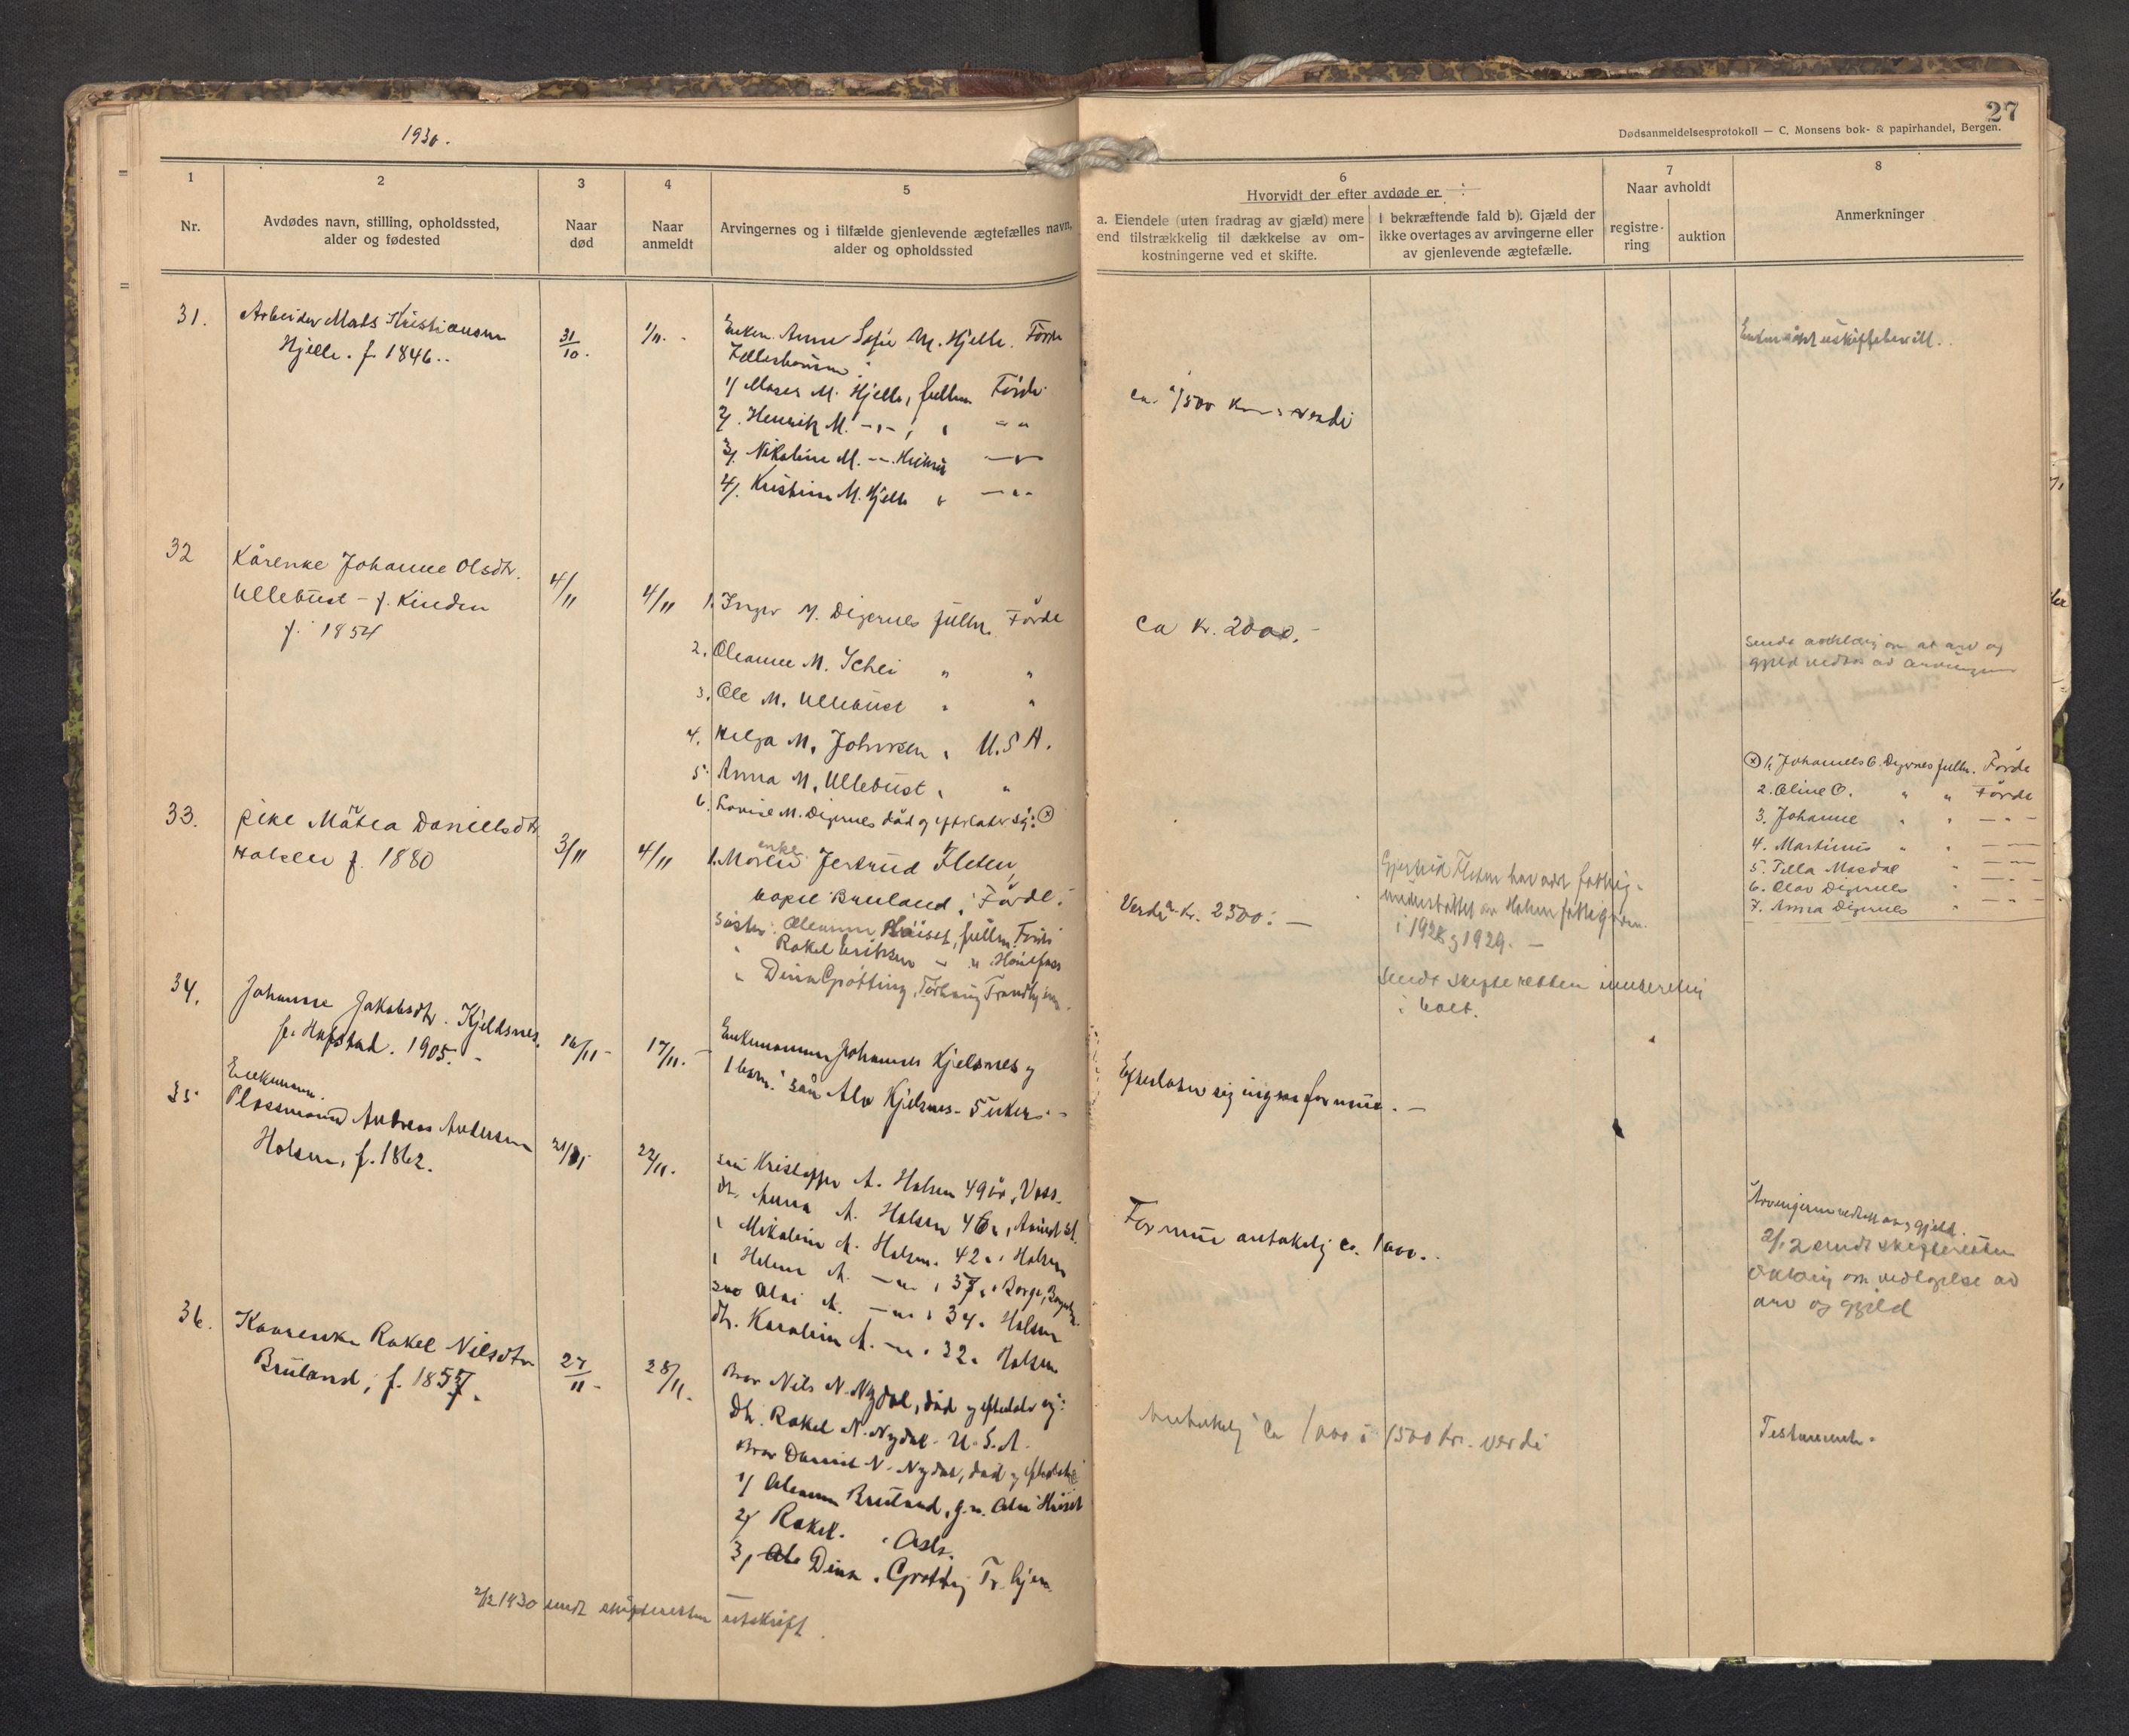 1930.
27
Dødsanmeldelsesprotokoll — C. Monsens bok- & papirhandel, Bergen.
1
Nr.
2
Avdødes navn, stilling, opholdssted,
alder og fødested
3
Naar
død
4
Naar
anmeldt
5
Arvingernes og i tilfælde gjenlevende ægtefælles navn,
alder og opholdssted
6
Hvorvidt der efter avdøde er :
a. Eiendele (uten fradrag av gjæld) mere
end tilstrækkelig til dækkelse av om-
kostningerne ved et skifte.
I bekræftende fald b). Gjæld der
ikke overtages av arvingerne eller
av gjenlevende ægtefælle.
7
Naar avholdt
registre-
ring
auktion
8
Anmerkninger
31.
Arbeider Mads Kristiansen
Hjelle. f. 1846..
31/10.
1/11.
Enken Anne Sofie M. Hjelle. Førde
1/ Moses M. Hjelle, fullm. Førde
2/. Henrik M. -"- , " - "
3/. Nikoline M. -"-
4/. Kristine M. Hjelle " - " -
ca. 1500 Kr. verdi
uskiftebevill.
32
Kårenke Johanne Olsdtr.
Ullebust - f. Kinden
f. 1854
4/11
4/11
1. Inger M. Digernes fullm. Førde
2. Oleanne M. Schei " "
3. Ole M. Ullebust " "
4. Helga M. Johnsen " U.S.A.
5. Anna M. Ullebust " "
6. Lovise M. Digernes død og efterlater sig: ⓧ
ca kr. 2000.-
Sendt erklæring om at arv og
gjeld vedtas av arvingene
ⓧ 1. Johannes O. Digernes fullm. Førde
2. Oline O. " " Førde
3. Johanne " " — " —
4. Martinus " " — " —
5. Tilla Mosdal " — " —
6. Olav Digernes " — " —
7. Anna Digernes " — " —
33.
pike Mätea Danielsdtr
Holsen f. 1880
3/11
4/11
1. Moren enke Jertrud Fleten,
Bruland, Førde.
Søster: Oleanne fullm. Førde
" Rakel Eriksen - " Hønefoss
" Dina Grøtting, Trondhjem.
Verdi ca. kr. 2500: —
Gjertrud Fleten har vært fattig-
understøttet av Holsen
i 1928 og 1929. —
Sendt skifteretten innberetn.
34.
Johanne Jakobsdtr. Kjeldsnes,
f. Hafstad. 1905. -
16/11 -
17/11. -
Enkemannen Johannes Kjelsnes og
1 barn: søn Alv Kjelsnes - 5 uker. -
Efterlater sig ingen formue. —
35
Enkemann.
Plassmann Andreas Andersen
Holsen, f. 1862.
21/11
22/11.
søn Kristoffer A. Holsen 49 år, Voss.
dtr. Anna A. Holsen
" Mikaline A. Holsen. 42 " Holsen
" Helene A. — " — 37 "
søn A. — " — 34 " Holsen
dtr. Karoline A. — " — 32 " Holsen
Formue antakelig ca. 1000..
Arvingerne vedtatt arv og gjeld.
2/12 sendt skifteretten
erklæring om vedtagelse av
arv og gjeld
36.
Kaarenke Rakel Nilsdtr
Bruland, f. 1857.
27/11 -
28/11.
Bror Nils N. Nydal, død og efterlater sig:
Dtr. Rakel N. Nydal - U.S.A.
Bror Daniel N. Nydal, død og efterlater
1/ Oleanne Bruland, g.m.
2/ Rakel. " Oslo.
3/ Dina " Grøtting Tr.hjem
Antakelig ca 1000 à 1500 kr. verdi
Testamente.
2/12 1930 sendt skifteretten utskrift.